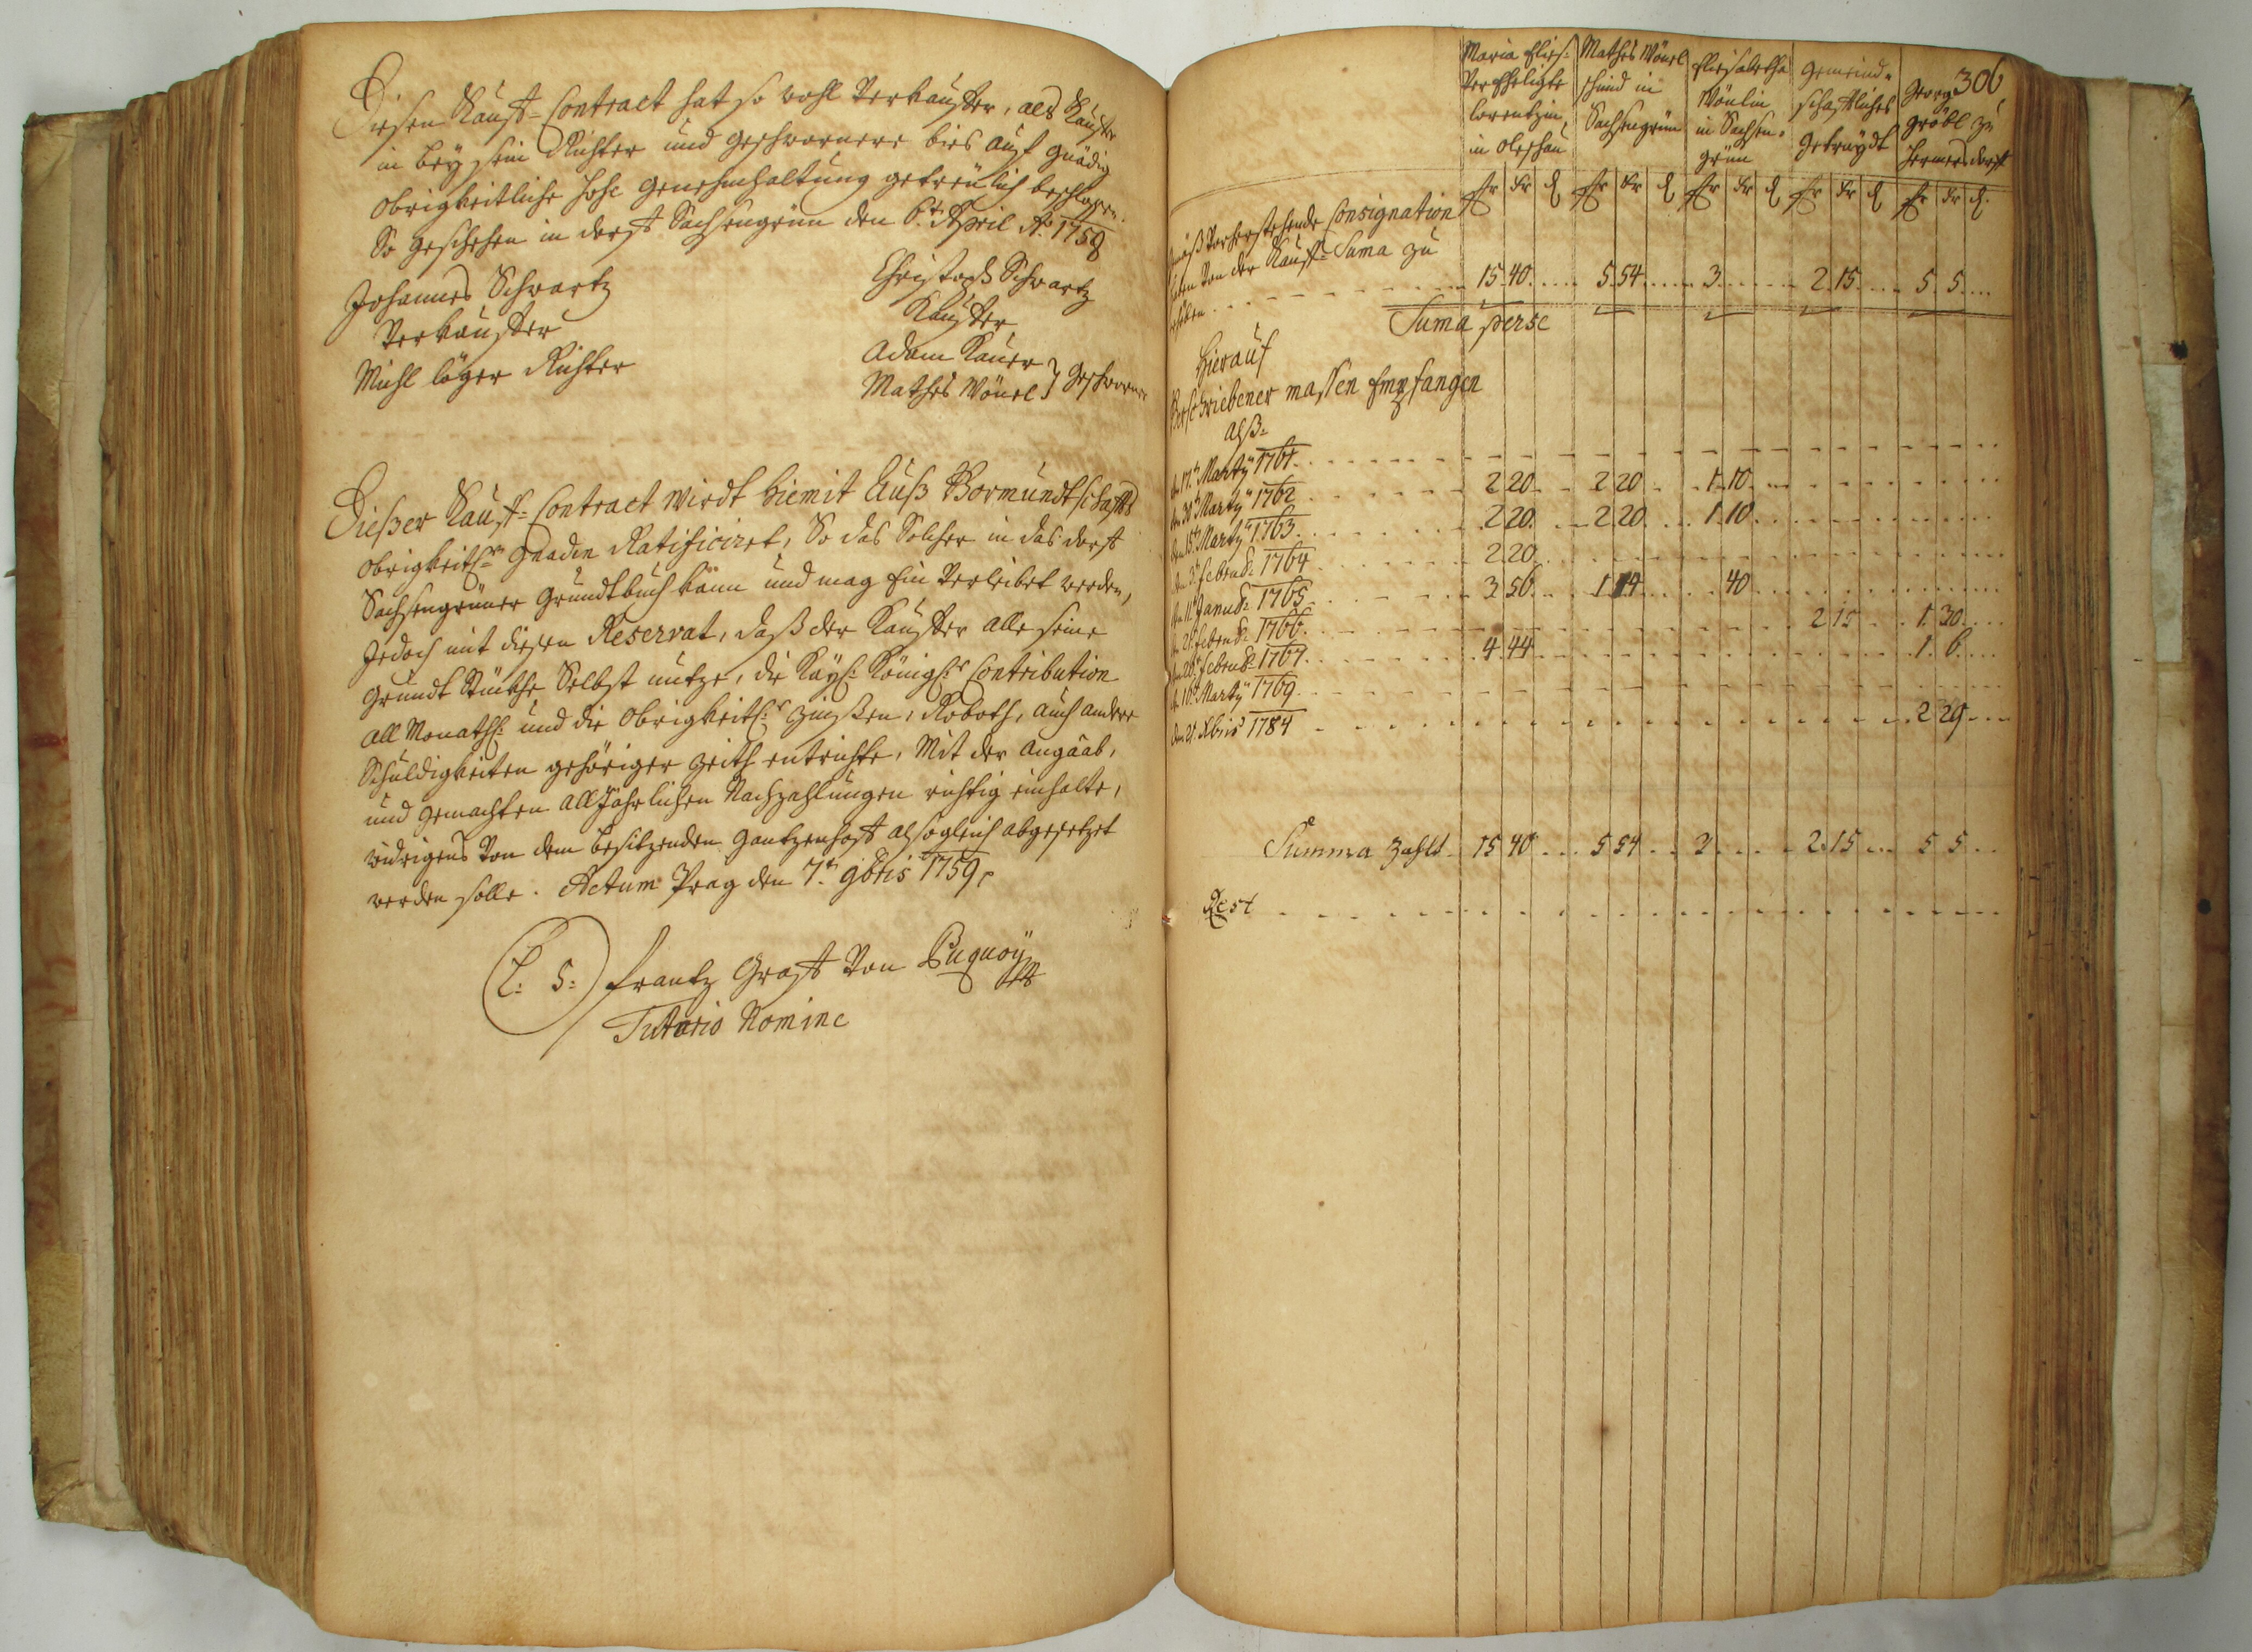 Diesen Kauff-Contract hat so wohl Verkauffer, als Kauffer
in beÿ sein Richter und geschwornere bies auff gnädig
obrigkeitliche hohe genehmhaltung getreülich beschlossen.
So geschehen in dorff Sachsengrün den 6.t April Aõ. 1759
Johannes Schwartz
Verkauffer
Michl löger Richter
Christoph Schwartz
Kauffer
Adam Kauer
Mathes Wönel } geschworne
Dießer Kauff-Contract wirdt hiemit Auß Vormundtschaffts
obrigkeitl: Gnaden Ratificiret, So das Solcher in das dorff
Sachsengrüner grundtbuch kann und mag Ein Verleibet werden,
Jedoch mit diesen Reservat, daß der Kauffer alle seine
grundt Stückhe Selbst nutze, die Kaÿl: Königl: Contribution
all Monathl: und die obrigkeitl: Zinßen, Roboth, auch andere
Schuldigkeiten gehöriger Zeith entrichte, Mit der Angaab,
und gemachten all Jährlichen Nachzahlungen richtig einhalte,
widrigens Von dem besitzenden gantzenhoff alsogleich abgesetzet
werden solle. Actum Prag den 7.t 9bris 1759.
(L: S:) Frantz Graff Von Buquoÿ
Tutorio Nomine
306
Maria Elis:
Verehligte
lorentzin
in oleschau
Mathes Wönel
schmid in
Sachsengrün
Elisabetha
Wönlin
in Sachsen-
grün
Gemeind-
schafftliches
getraÿdt
Georg
gröbl zu
Hermersdorff
fr kr d fr kr d fr kr d fr kr d fr kr d
Vorherstehende Consignation
haben Von der Kauff-Suma zu
15 40 5 54 3 2 15 5 5
Suma perse
Hierauf
Verschriebener massen Empfangen
Alß:
den 17.t Martÿ 1761
den 30.t Martÿ 1762 2 20 2 20 1 10
den 15.t Martÿ 1763 2 20 2 20 1 10
den 3.t Febru: 1764 2 20
den 11.t Janu: 1765 3 56 1 14 40
den 21.t Febru: 1766 2 15 1 30
den 26.t Febru: 1767 4 44 1 6
den 16.t Martÿ 1769
den 21. Xbris 1784 2 29
Summa Zahlt 15 40 5 54 3 2 15 5 5
Rest